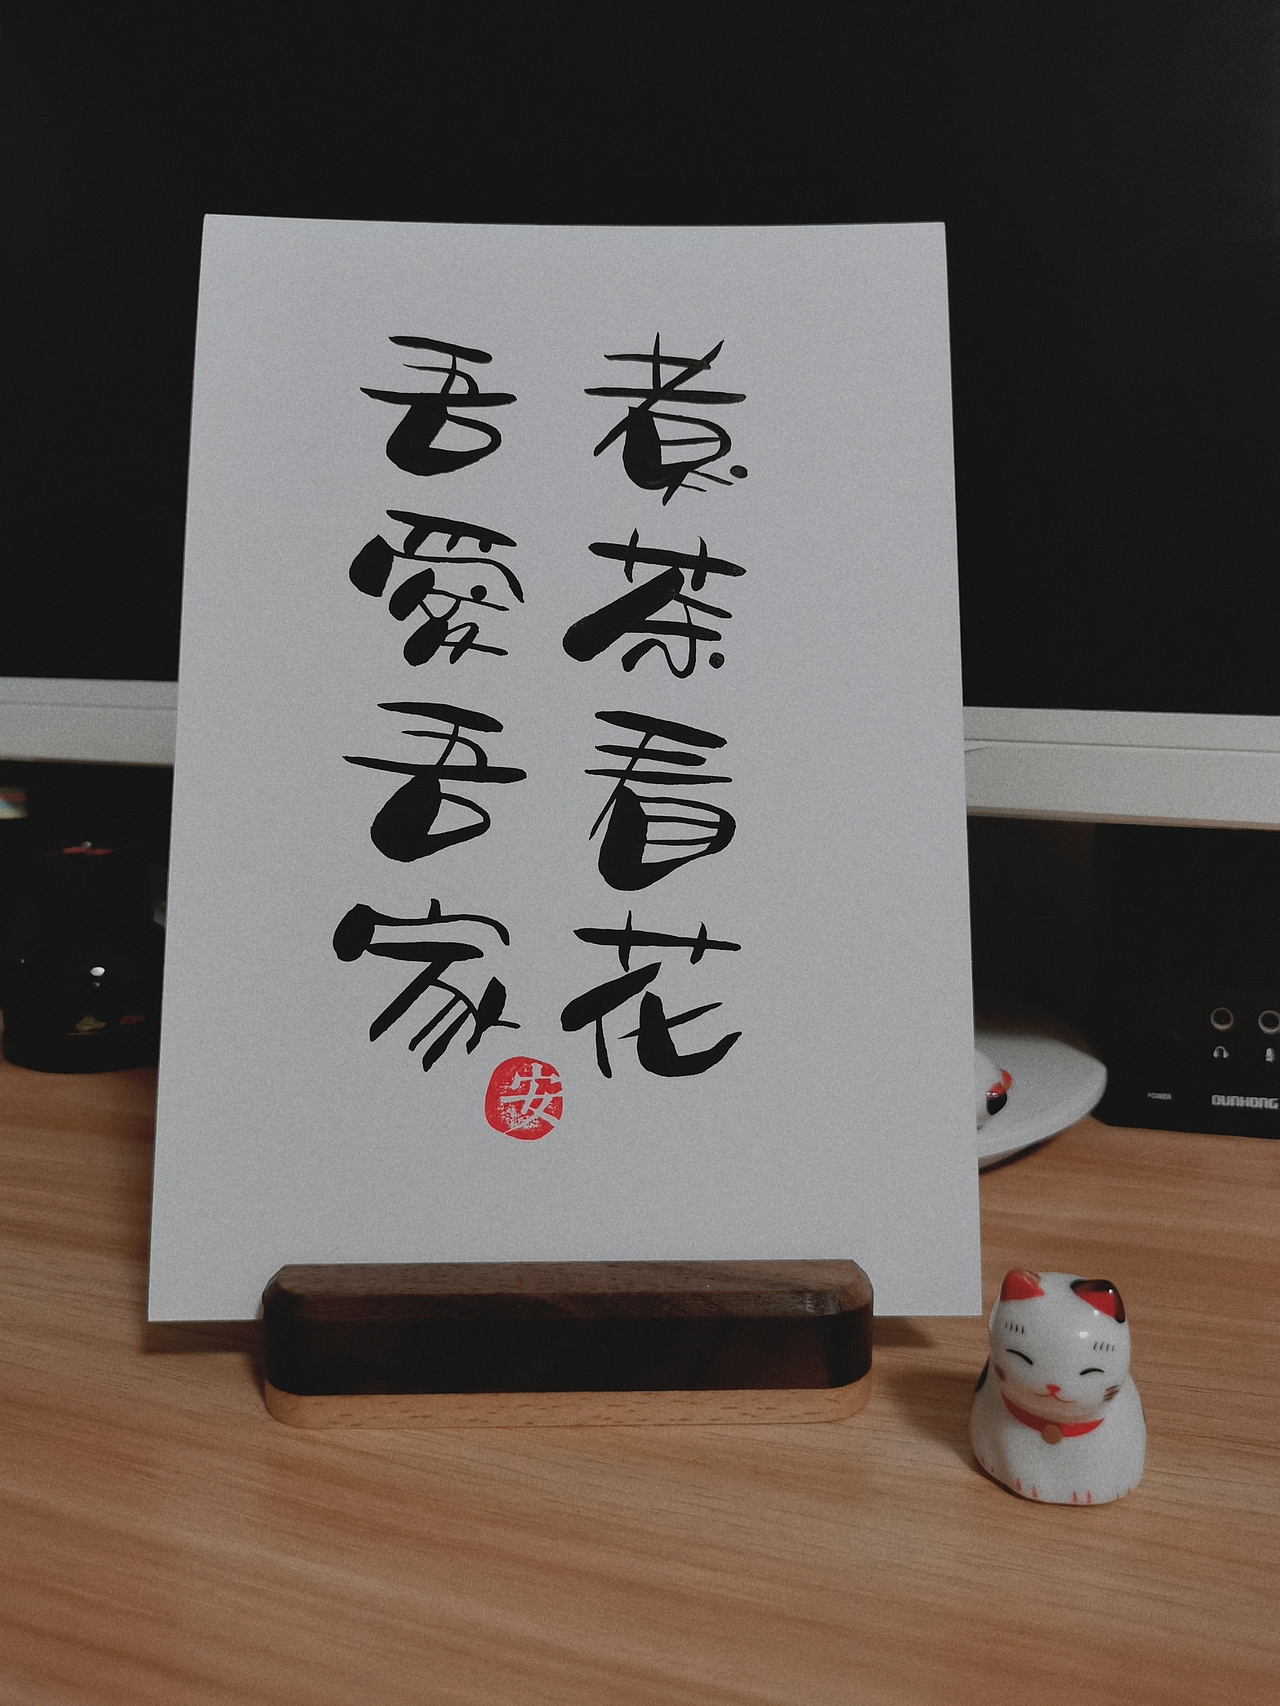 煮茶看花
吾愛吾家
安
POWER
OUNHONG